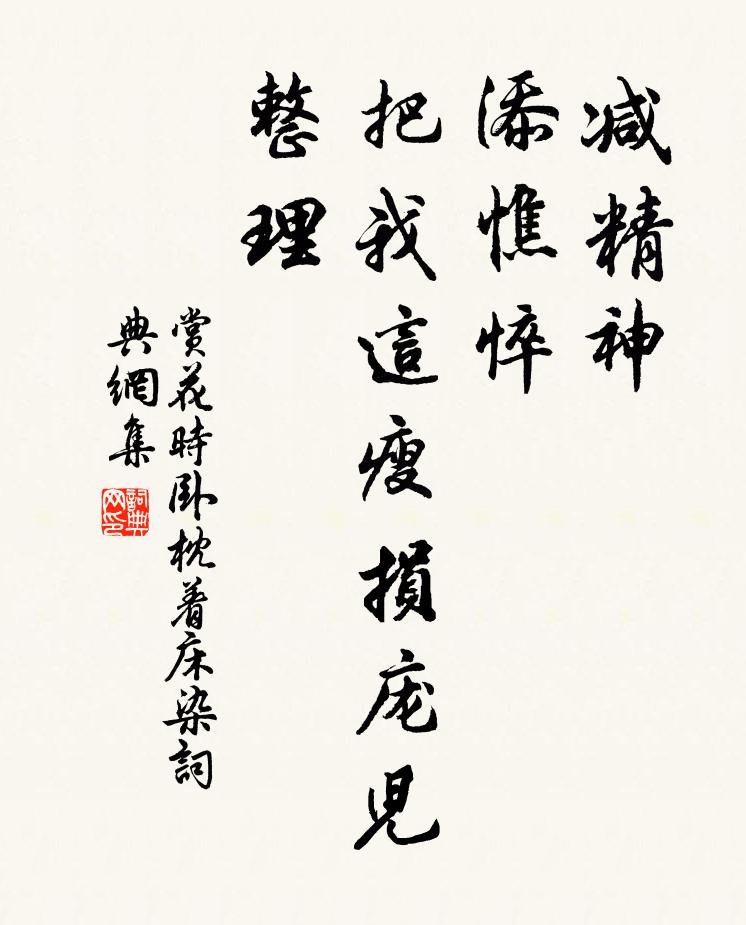 减精神
添憔悴
把我這瘦損庞兒
整理
賞花時卧枕着床染詞
典網集
詞典网印